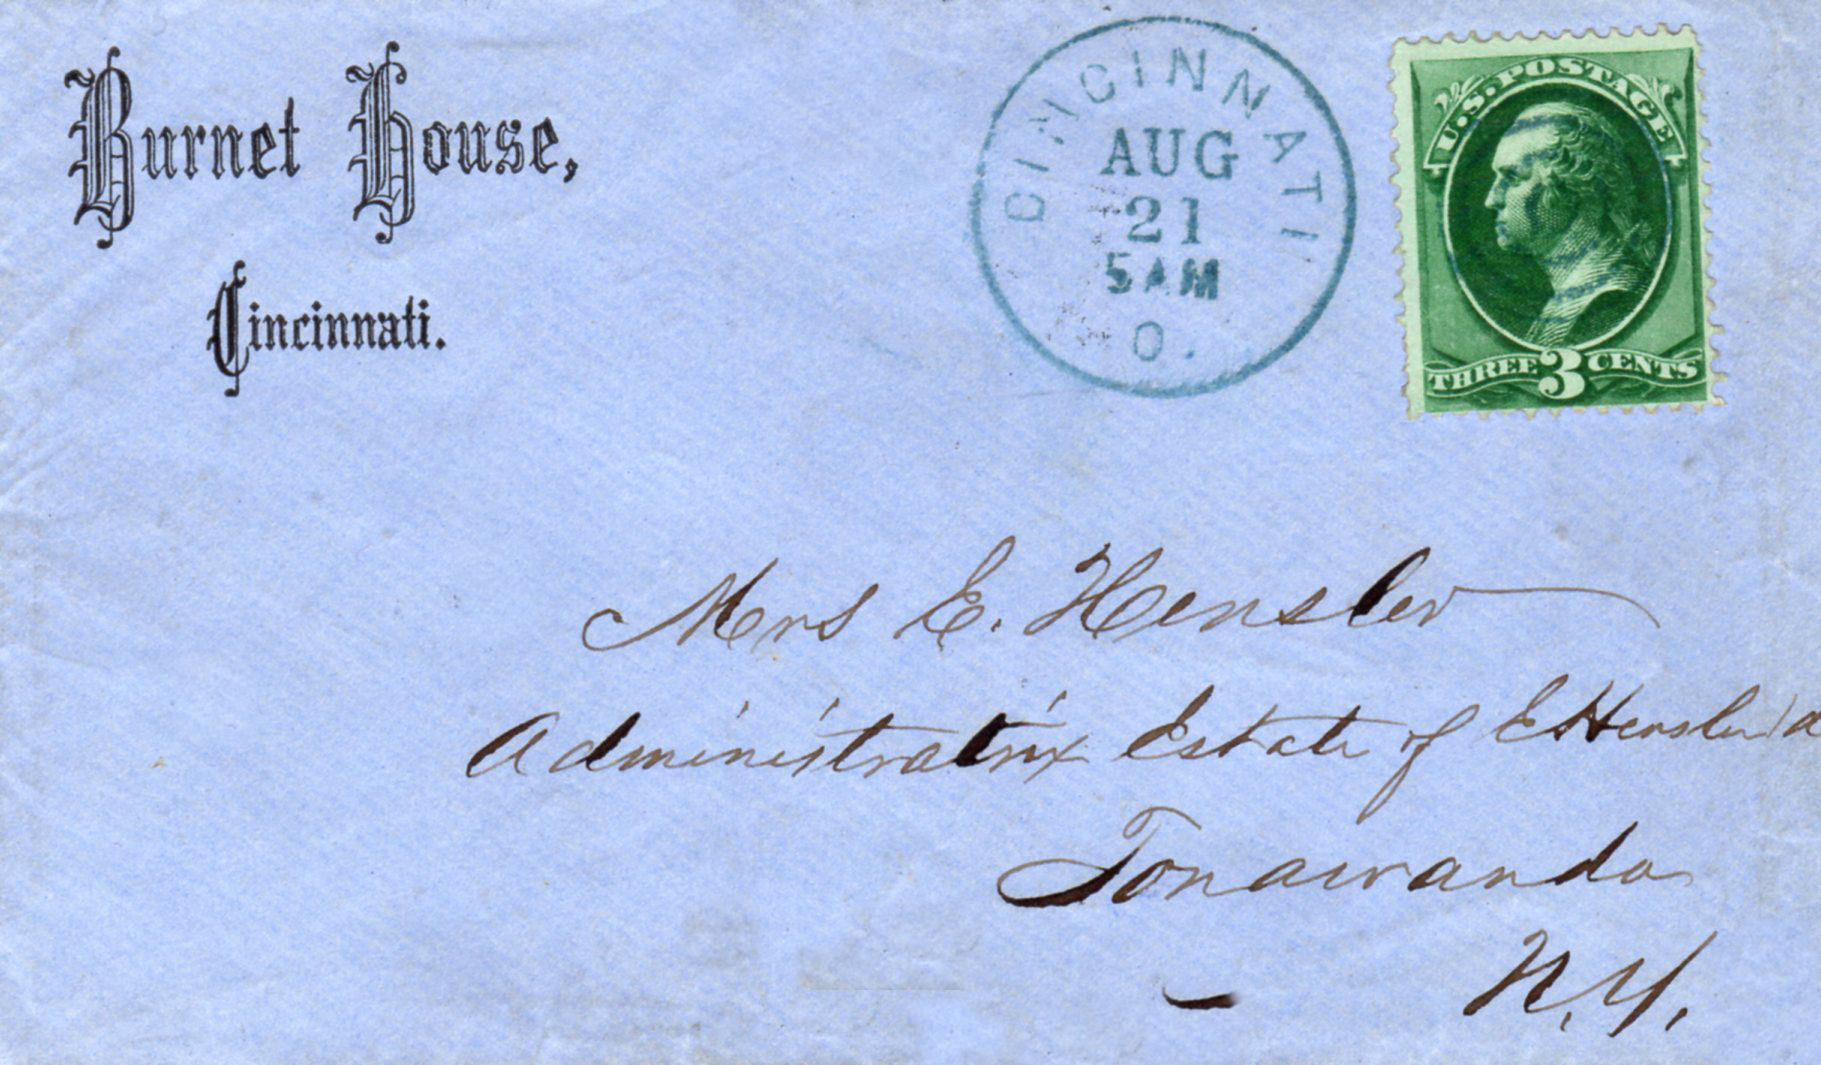 Burnet House,
Cincinnati.
CINCINNATI
AUG
21
5 AM
O.
U.S. POSTAGE
THREE 3 CENTS
Mrs E. Hensler
Administratrix Estate of E Hensler
Tonawanda
N.Y.